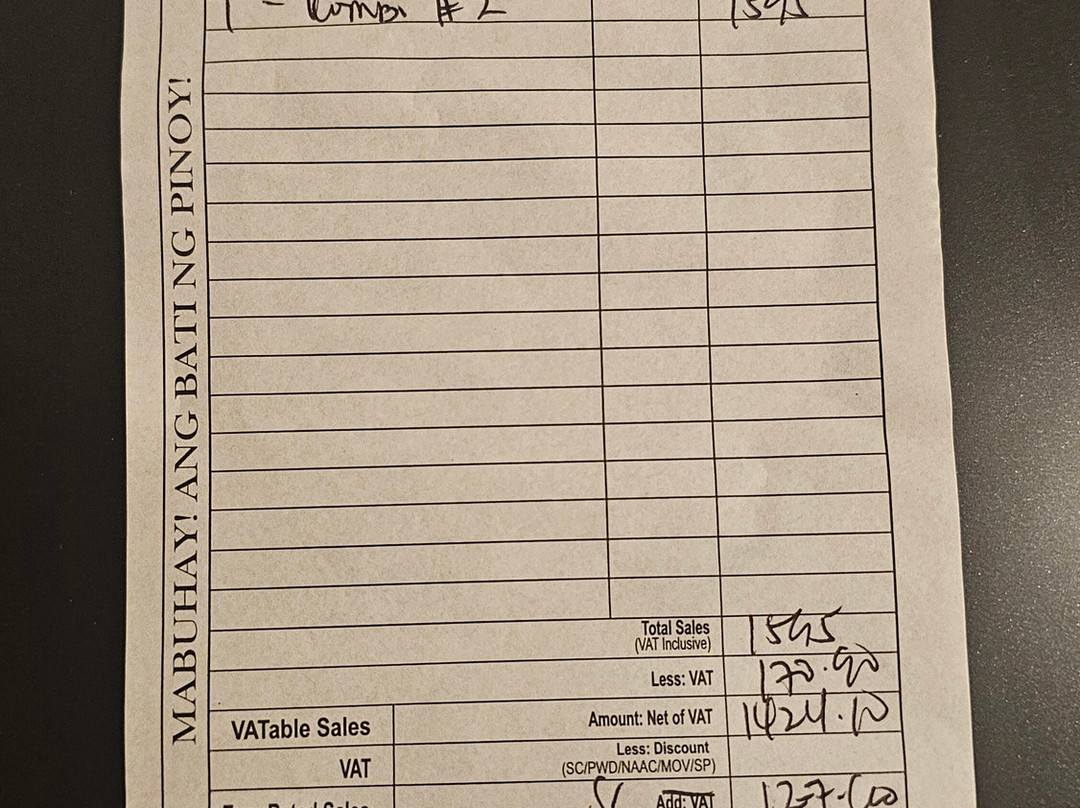 1 - Kombi # 2 1595
MABUHAY! ANG BATI NG PINOY!
Total Sales 1595
(VAT Inclusive)
Less: VAT 170.90
VATable Sales Amount: Net of VAT 1424.10
VAT Less: Discount
(SC/PWD/NAAC/MOV/SP)
Add: VAT